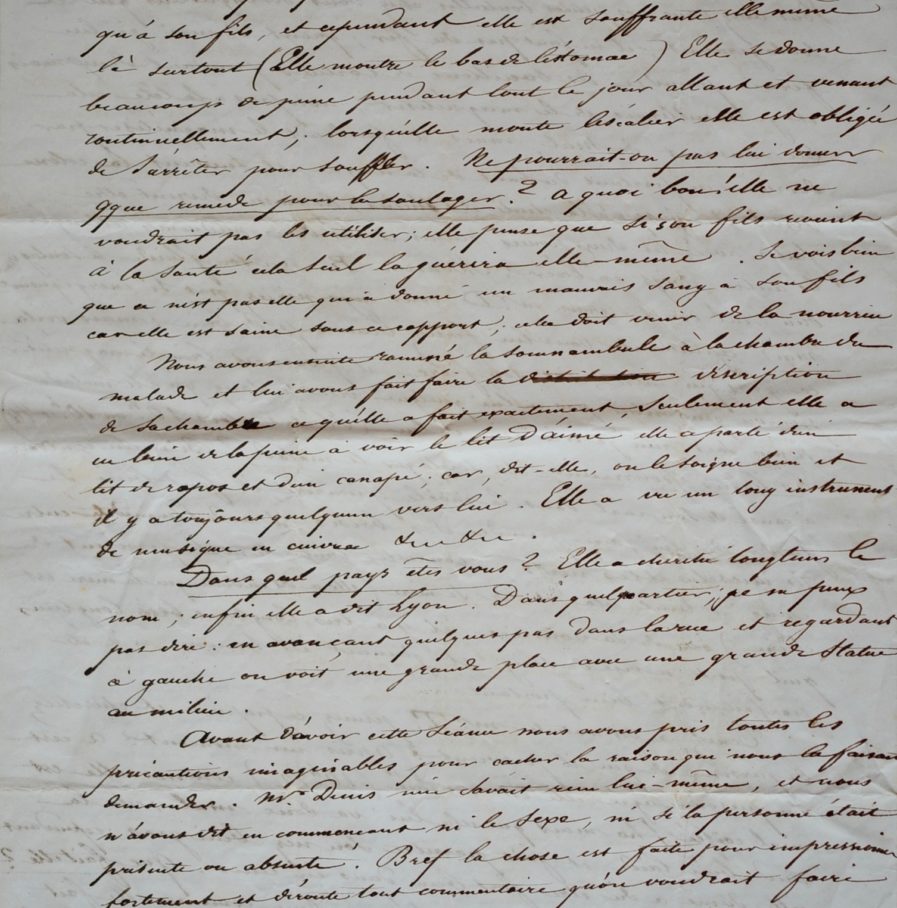 qu'à son fils, et cependant elle est souffrante elle même
là surtout (Elle montre le bas de l'éstomac) Elle se donne
beaucoup de peine pendant tout le jour allant et venant
continuellement; lorsqu'elle monte l'éscalier elle est obligée
de s'arrêter pour souffler. Ne pourrait-on pas lui donner
qque remède pour la soulager? a quoi bon elle ne
voudrait pas les utiliser; elle pense que si son fils revient
à la santé cela seul la guérira elle-même. Je vois bien
que ce n'est pas elle qui a donné un mauvais sang à son fils
car elle est saine sous ce rapport; cela doit venir de la nourrice
Nous avons ensuite ramené la somnambule à la chambre du
malade et lui avons fait faire la description
de sa chambre ce qu'elle a fait exactement, seulement elle a
eu bien de la peine à voir le lit d'aimé elle a parlé d'un
lit de repos et d'un canapé; car, dit-elle, on le soigne bien et
il y a toujours quelqu'un vers lui. Elle a vu un long instrument
de musique en cuivre &c &c.
Dans quel pays êtes vous? Elle a cherché longtems le
nom; enfin elle a dit Lyon. Dans quel quartier; je ne peux
pas dire: en avançant quelques pas dans la rue et regardant
à gauche on voit une grande place avec une grande statue
au milieu.
Avant d'avoir cette séance nous avons pris toutes les
précautions imaginables pour cacher la raison qui nous la faisait
demander. Mr. Denis n'en savait rien lui-même, et nous
n'avons dit en commençant ni le sexe, ni si la personne était
présente ou absente. Bref la chose est faite pour impressionner
fortement et déroute tout commentaire qu'on voudrait faire